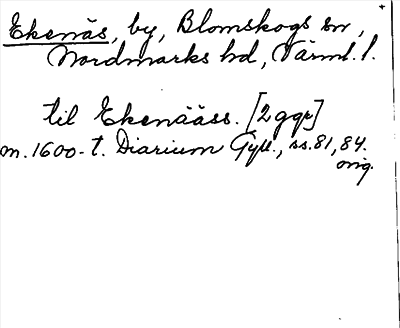 Ekenäs, by, Blomskogs sn,
Nordmarks hd, Värml. l.
til Ekenääss. [2 ggr]
m. 1600-t. Diarium Gyll., ss. 81, 84.
orig.